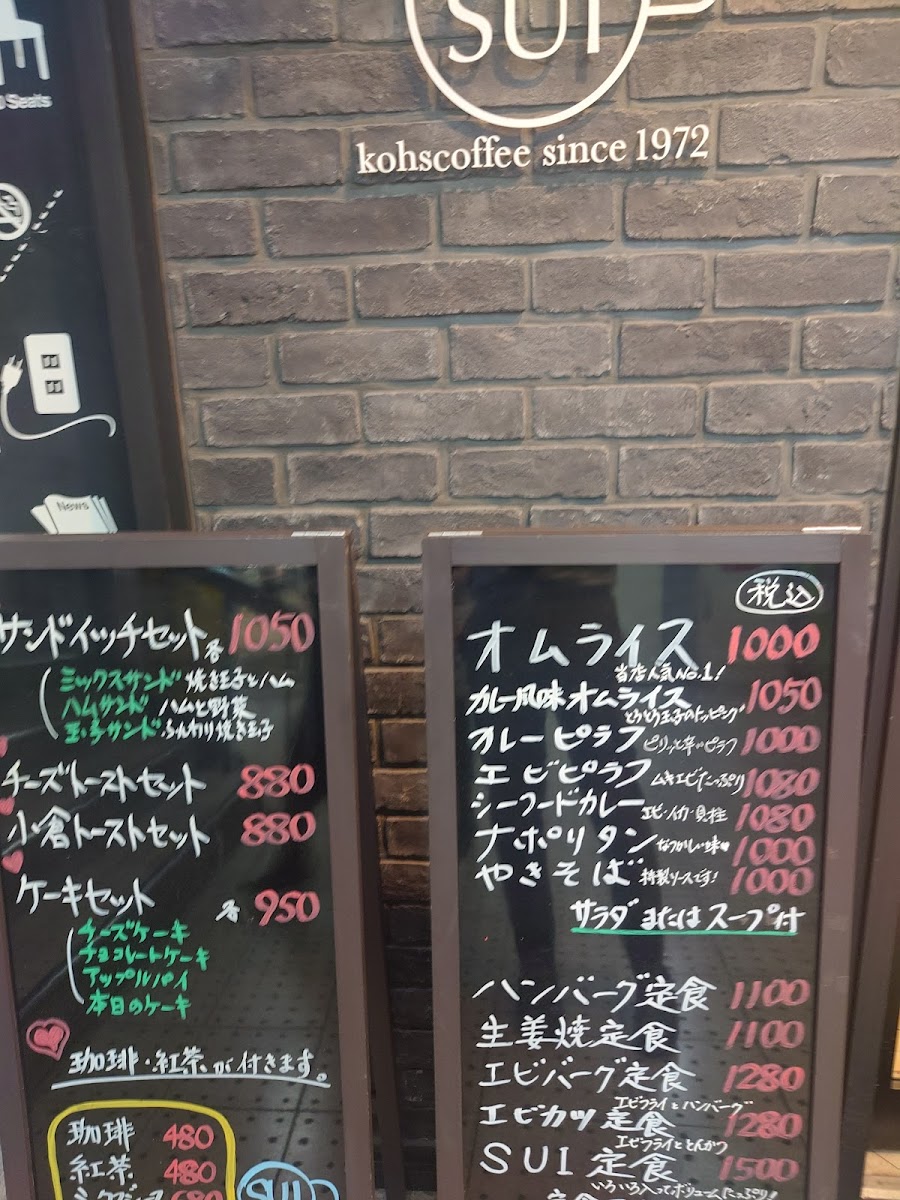 SUI
kohscoffee since 1972
Seats
News
サンドイッチセット 各 1050
ミックスサンド 焼き玉子とハム
ハムサンド ハムと野菜
玉子サンド ふんわり焼き玉子
チーズトーストセット 880
小倉トーストセット 880
ケーキセット 各 950
チーズケーキ
チョコレートケーキ
アップルパイ
本日のケーキ
珈琲・紅茶が付きます。
珈琲 480
紅茶 480
SUI
税込
オムライス 1000
当店人気No.1!
カレー風味オムライス 1050
とろとろ玉子のトッピング
カレーピラフ ピリッと辛いピラフ 1000
エビピラフ ムキエビたっぷり 1080
シーフードカレー エビ・イカ・貝柱 1080
ナポリタン なつかしい味♥ 1000
やきそば 特製ソースです! 1000
サラダまたはスープ付
ハンバーグ定食 1100
生姜焼定食 1100
エビバーグ定食 1280
エビフライとハンバーグ
エビカツ定食 1280
エビフライととんかつ
SUI定食 1500
いろいろ入ってボリュームたっぷり!